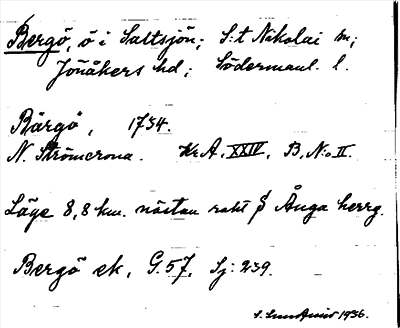 Bergö, ö i Saltsjön; S:t Nikolai sn;
Jönåkers hd; Södermanl. l.
Bärgö, 1734.
N. Strömcrona. Kr.A. XXIV, B, N:o II.
Läge 8,8 km. nästan rakt S Ånga herrg.
Bergö ek. G. 57. Sj: 239.
1936.